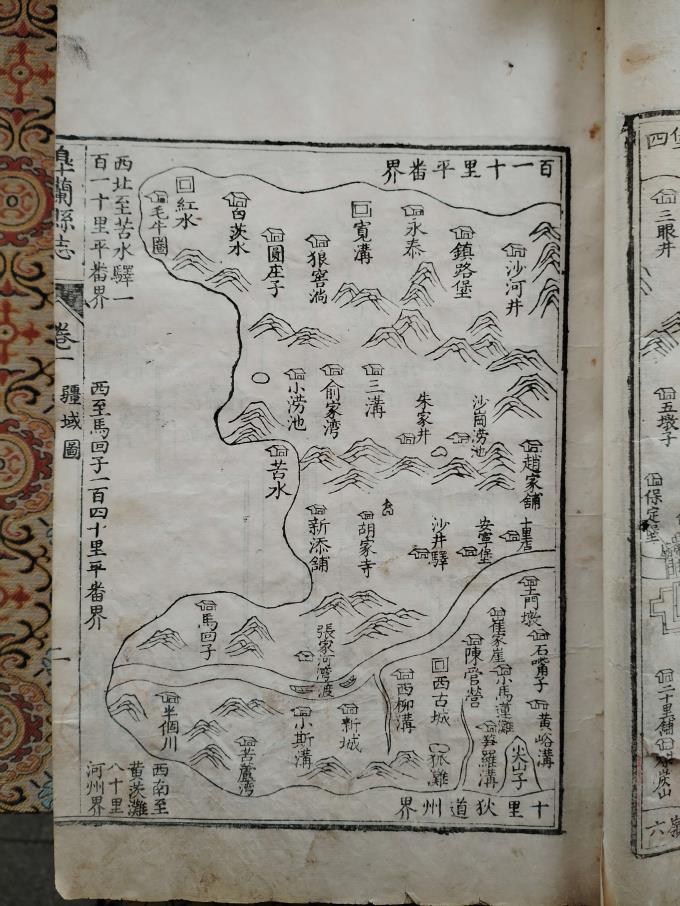 皐蘭縣志
卷一
疆域圖
一
百一十里平番界
西北至苦水驛一
百一十里平番界
西至馬回子一百四十里平番界
西南至
黄茨灘
八十里
河州界
十里狄道州界
沙河井
鎮路堡
永泰
寬溝
狼窖淌
圓庄子
白茨水
紅水
毛牛圈
沙崗澇池
朱家井
三溝
俞家湾
小澇池
趙家舖
苦水
十里店
安寧堡
沙井驛
胡家寺
新添舖
馬回子
土門墩
崔家崖
石嘴子
陳官營
小馬蓮灘
黄峪溝
西古城
西柳溝
張家河湾渡
新城
小斯溝
苦蘆湾
半個川
狐灘
羅溝
尖山子
三眼井
五墩子
保定堡
二十里舖
四
六